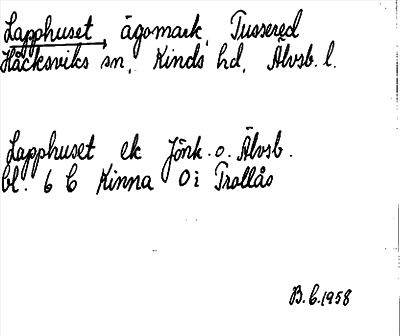 Lapphuset, ägomark, Tussered
Häcksviks sn, Kinds hd, Älvsb. l.
Lapphuset ek Jönk. o. Älvsb.
bl. 6 C Kinna 0i Trollås
B.G.1958